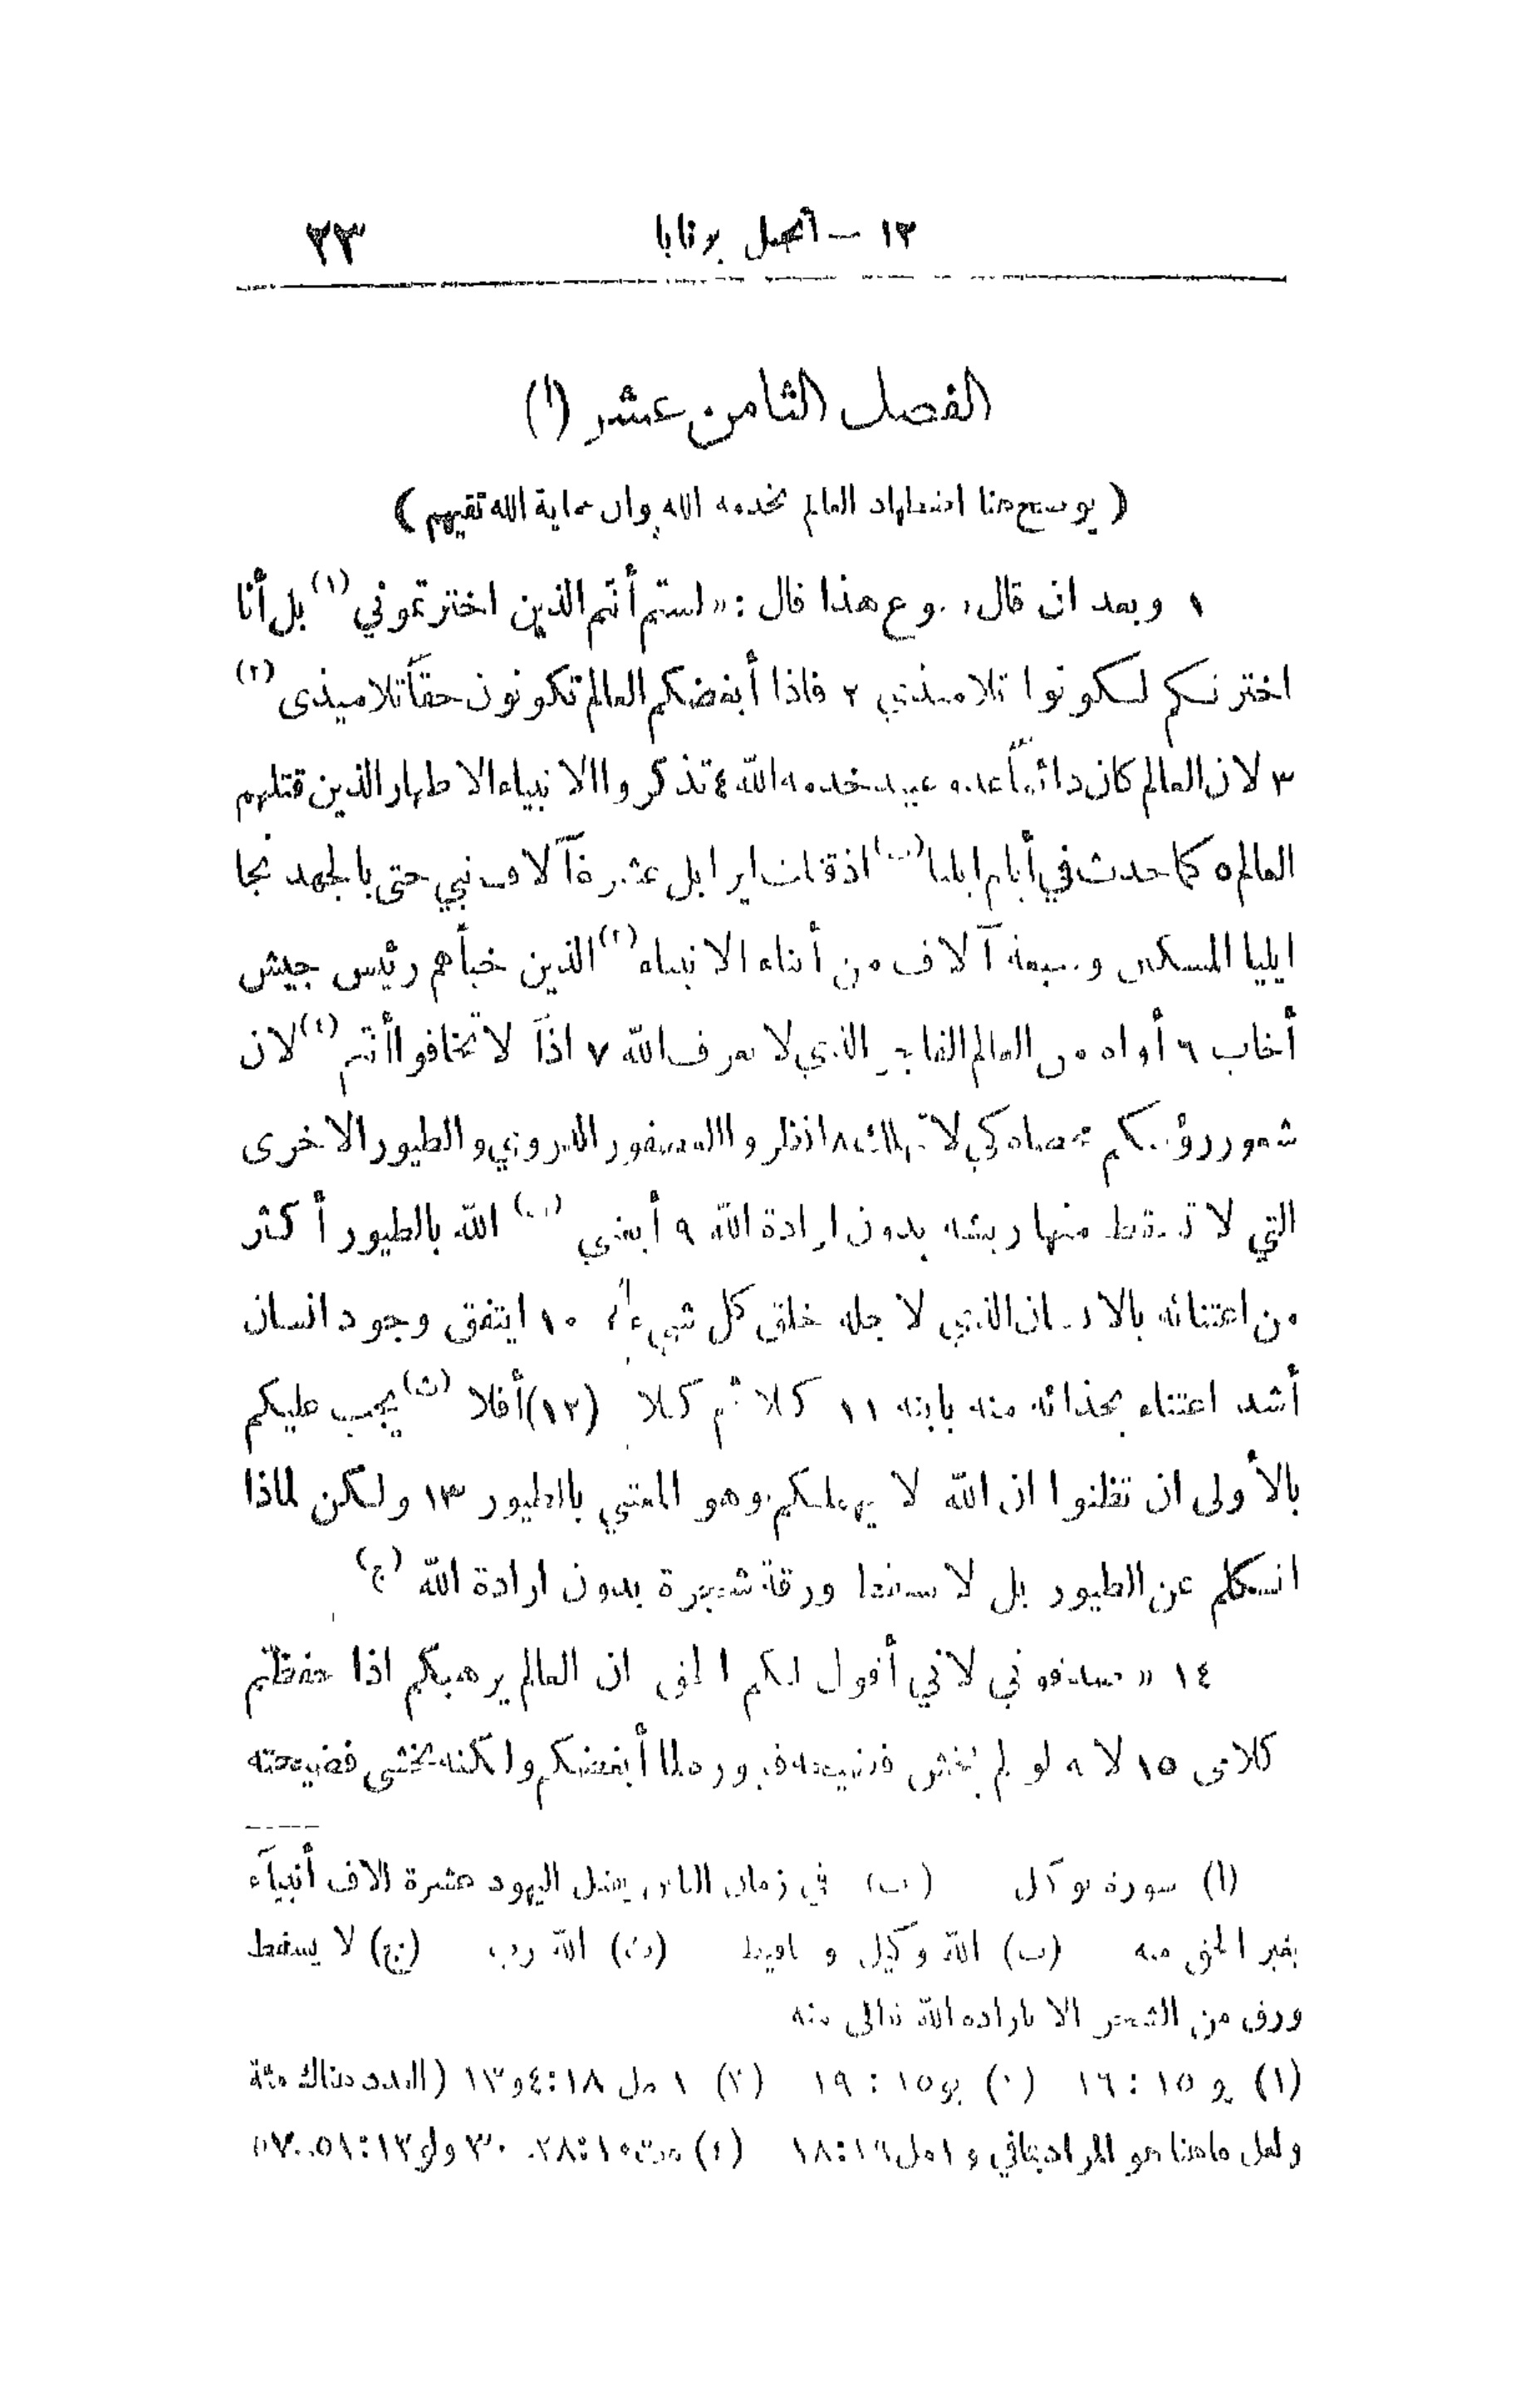 ١٣ — أنجيل برنابا ٣٣
الفصل الثامن عشر (أ)
( يوضح هنا اضطهاد العالم لخدمه الله وان حماية الله تقيهم )
١ وبعد ان قال يسوع هذا قال : « لستم أنتم الذين اخترتموني (١) بل أنا
اخترتكم لتكونوا تلاميذي ٢ فاذا أبغضكم العالم تكونون حقاً تلاميذى (٢)
٣ لان العالم كان دائماً عدو عبيد خدمه الله ٤ تذكروا الانبياء الاطهار الذين قتلهم
العالم ٥ كما حدث في أيام ايليا (ب) اذ قتلت ايزابل عشرة آلاف نبي حتى بالجهد نجا
ايليا المسكين وسبعة آلاف من أبناء الانبياء (٣) الذين خبأهم رئيس جيش
أخاب ٦ أواه من العالم الفاجر الذي لا يعرف الله ٧ اذاً لا تخافوا أنتم (٤) لان
شعور رؤسكم محصاه كي لا تهلك ٨ انظروا العصفور الدوري والطيور الاخرى
التي لا تسقط منها ريشه بدون ارادة الله ٩ أيعتني (ب) الله بالطيور أكثر
من اعتنائه بالانسان الذي لاجله خلق كل شيء ١٠ ايتفق وجود انسان
أشد اعتناء بحذائه منه بابنه ١١ كلا ثم كلا (١٢) أفلا (ث) يجب عليكم
بالأولى ان تظنوا ان الله لا يهملكم وهو المعتني بالطيور ١٣ ولكن لماذا
اتكلم عن الطيور بل لا تسقط ورقة شجرة بدون ارادة الله (ج)
١٤ « صدقوني لاني أقول لكم الحق ان العالم يرهبكم اذا حفظتم
كلامى ١٥ لانه لو لم يخش فضيحة فجوره لما أبغضكم ولكنه يخشى فضيحته
(أ) سورة توكل (ب) في زمان الياس يقتل اليهود عشرة الاف أنبيآء
بغير الحق منه (ب) الله وكيل و حفيظ (ث) الله رب (ج) لا يسقط
ورق من الشجر الا بارادة الله تعالى منه
(١) يو ١٥ : ١٦ (٢) يو ١٥ : ١٩ (٣) ١ مل ١٨ : ٤ و ١٣ (العدد هناك مئة
ولعل ما هنا هو المراد بما في و ١ مل ١٩ : ١٨ (٤) مت ١٠ : ٢٨ـ ٣٠ ولو ١٢ :